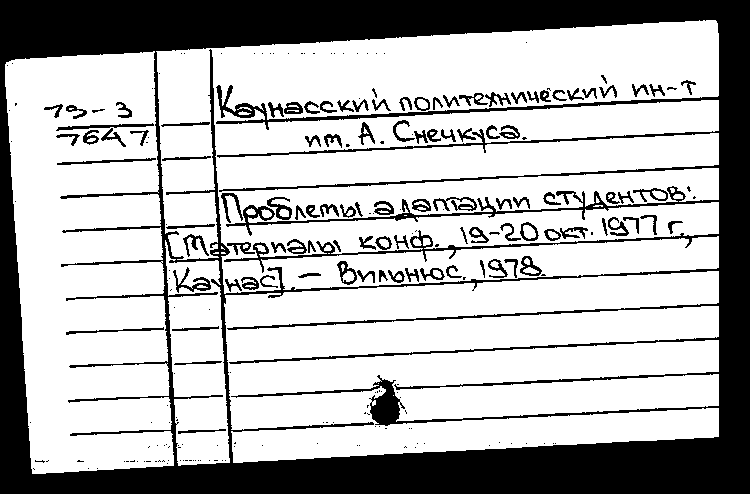 79-3
7647
Каунасский политехнический ин-т
им. А. Снечкуса.
Проблемы адаптации студентов:
[Материалы конф., 19-20 окт. 1977 г.,
Каунас]. - Вильнюс, 1978